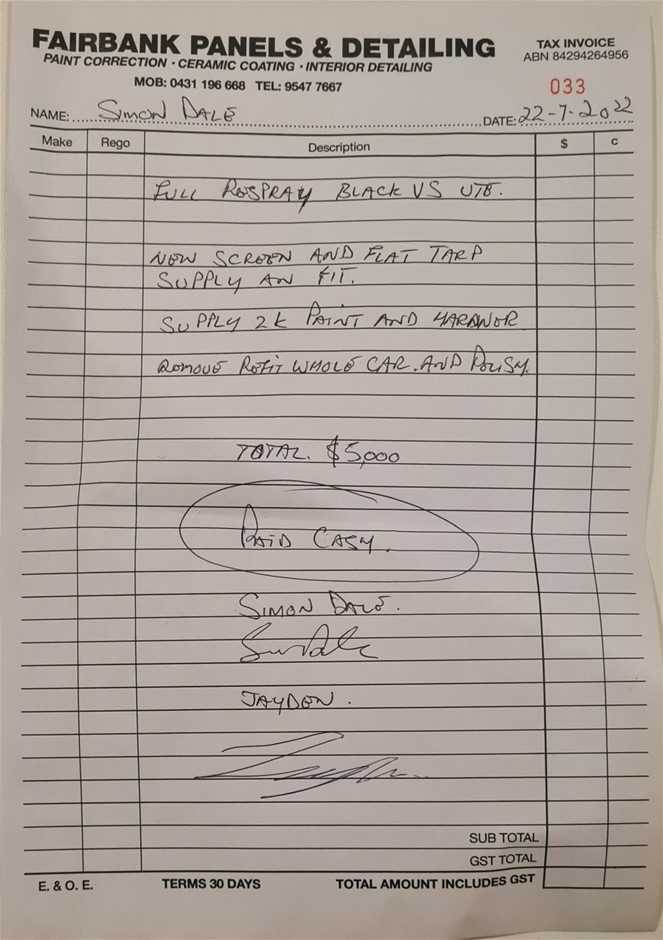 FAIRBANK PANELS & DETAILING
PAINT CORRECTION · CERAMIC COATING · INTERIOR DETAILING
MOB: 0431 196 668 TEL: 9547 7667
TAX INVOICE
ABN 84294264956
033
NAME: SIMON DALE
DATE: 22-7-2022
Make Rego Description $ c
FULL RESPRAY BLACK VS UTE.
NEW SCREEN AND FLAT TARP
SUPPLY AN FIT.
SUPPLY 2K PAINT AND HARDNER
REMOVE REFIT WHOLE CAR. AND POLISH.
TOTAL. $5,000
PAID CASH.
SIMON DALE.
JAYDEN.
SUB TOTAL
GST TOTAL
E. & O. E. TERMS 30 DAYS TOTAL AMOUNT INCLUDES GST